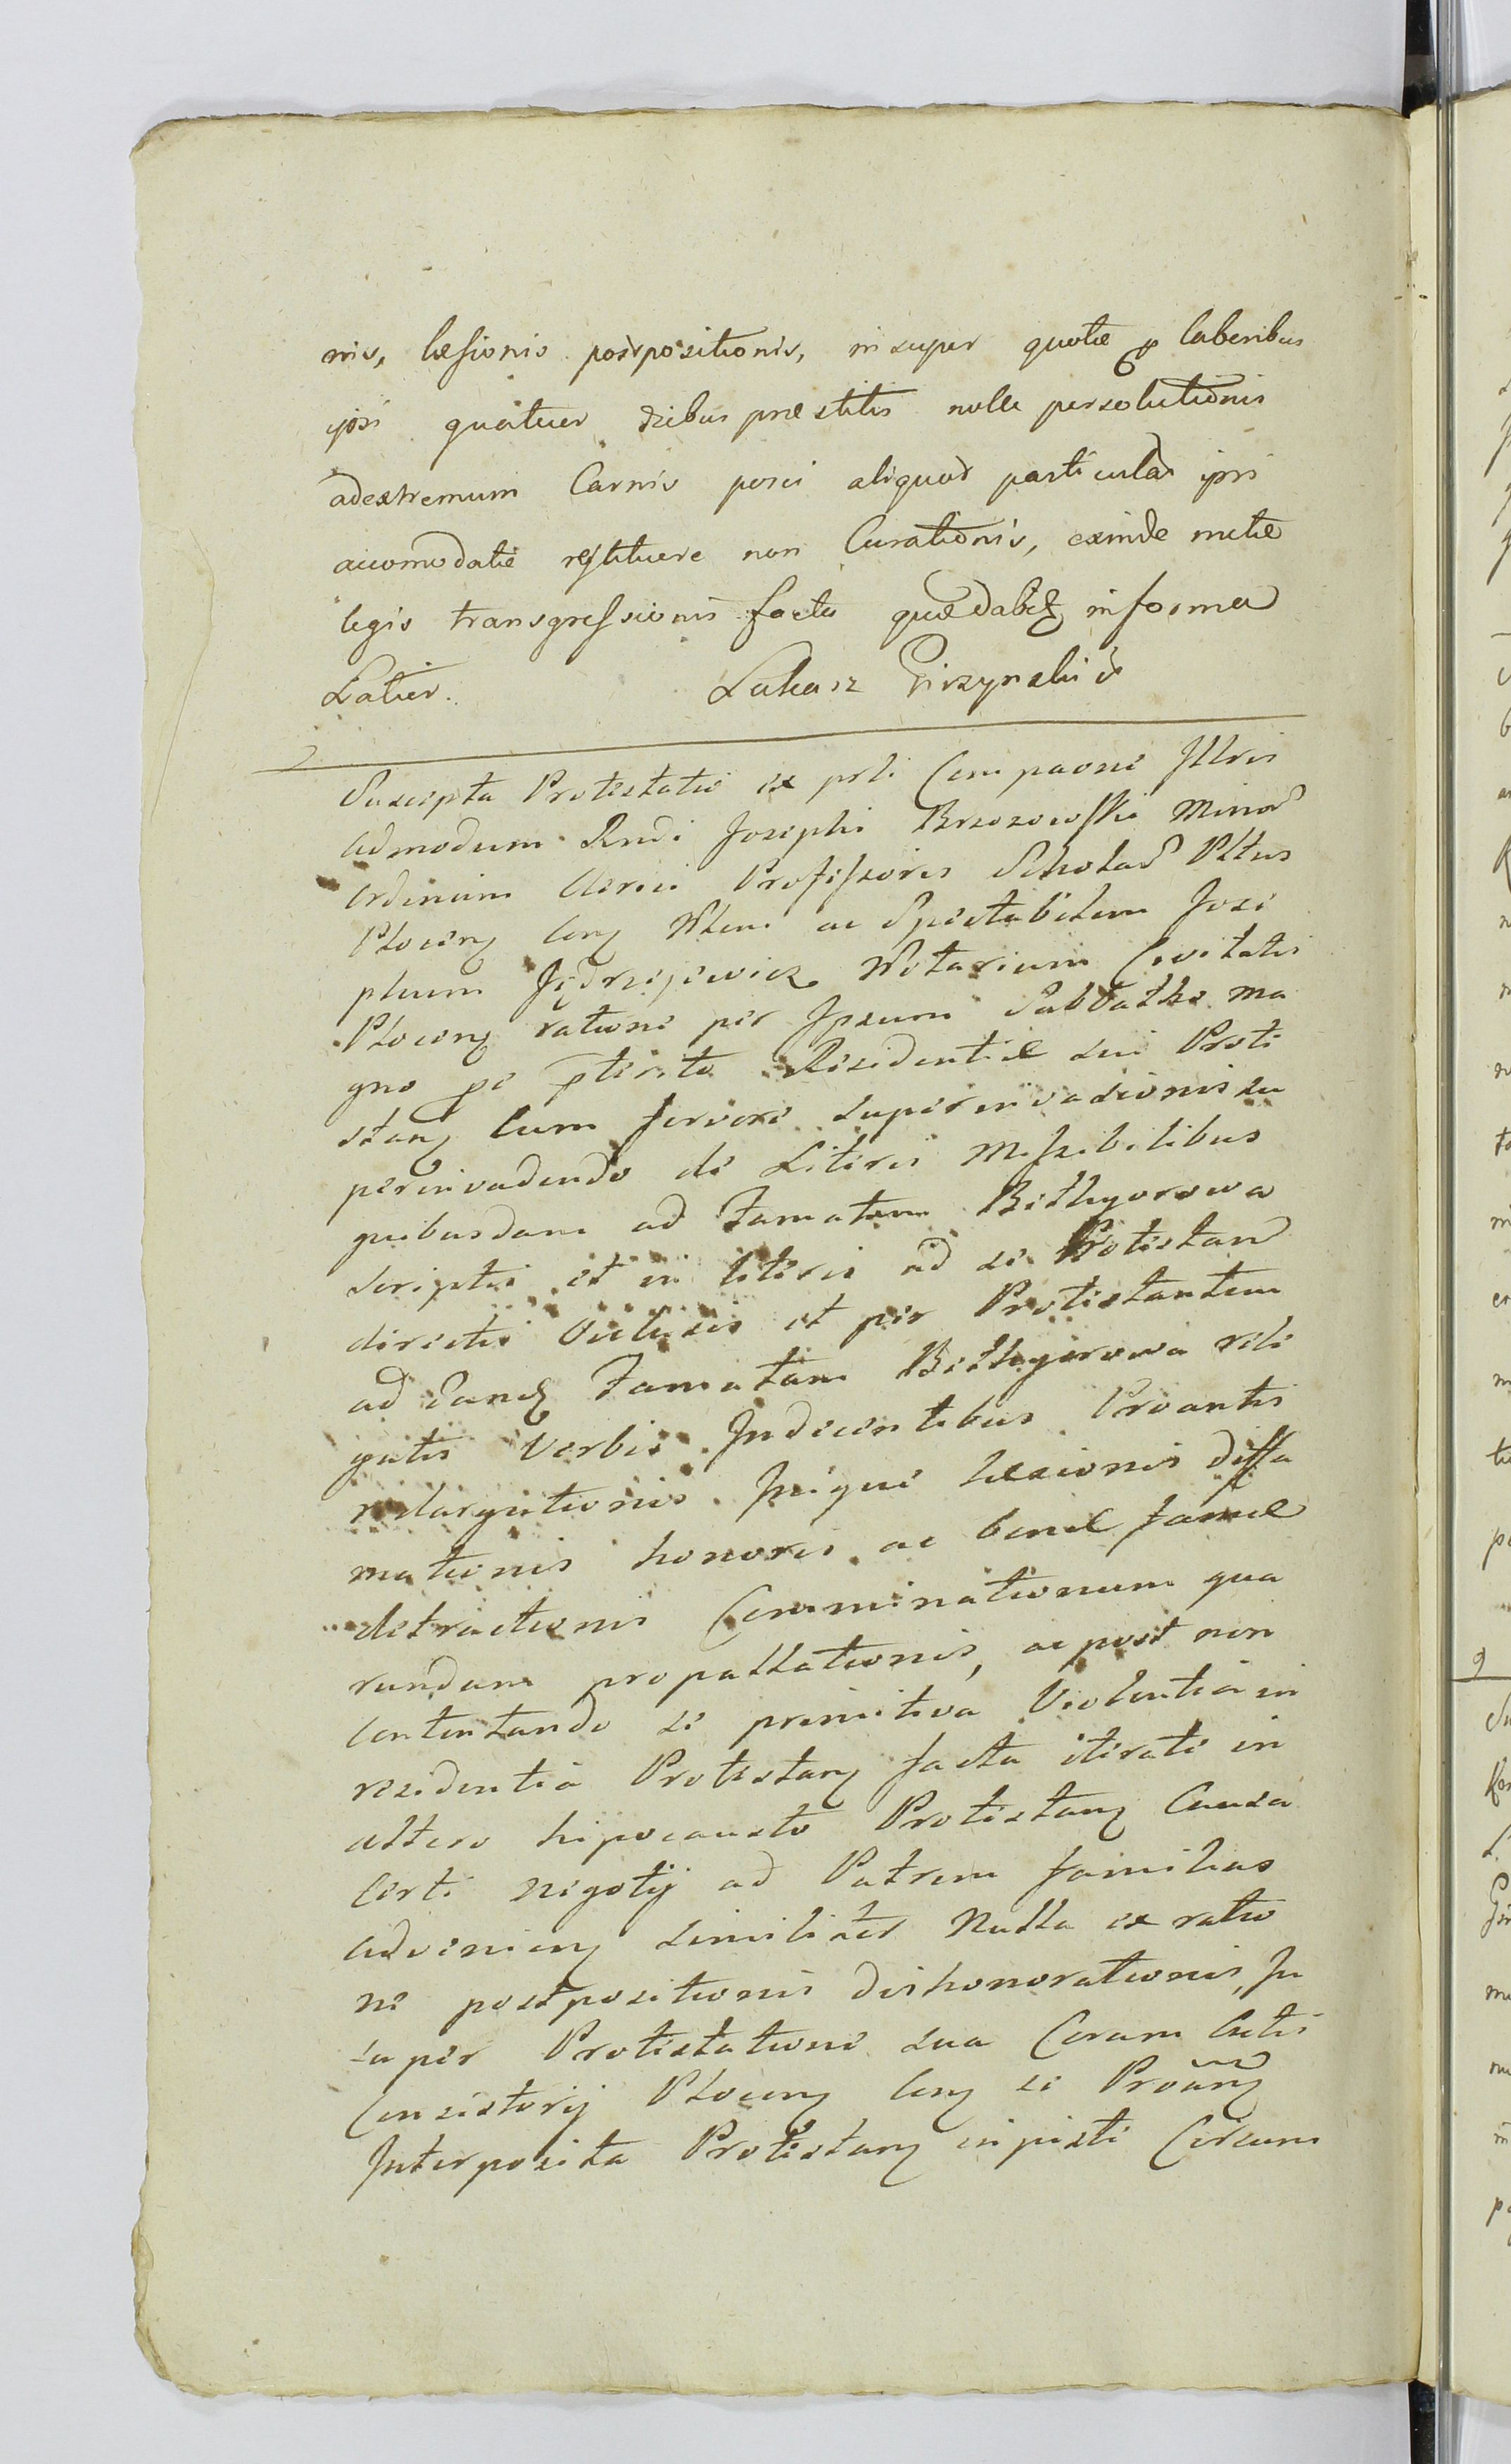 nis, læsionis postpositionis, insuper quotæ pro laboribus
ipsi quatuor diebus præstitis nullæ persolutionis
adextremum Carnis porci aliquod particulas ipsi
accomodatæ restituere non Curationis, exinde metæ
legis transgressionis facta quædabatq in forma
Latior. Lukasz Pirzynski
Suscepta Protestatio ex prti Compaone Illris
admodum Rndi Josephi Brzozowski Minor
ordinum Clerici Professoris Scholar Pltus
Plocens Cong Nlem ac Spectabilem Jose
phum Jędrzejewicz Notarium Civitatis
Plocens ratione per Ipsum Sabbatho ma
gno pe pterito Residentiæ sui Prote
stang cum fervore superinvasionis su
perinvadendo de Literis Missibilibus
quibusdam ad Famatam Bethyorowa
scriptis et in literis ad se Protestan
directis Oclusis et per Protestantem
ad Eandq Famatam Bethyorowa rele
gatis Verbis Indecentibus Proantis
redargutionis Inique læsionis diffa
mationis honoris ac bonæ famæ
detractionis Comminationum qua
rundam propallationis, ac post non
contentando se primitiva Violentia in
residentia Protestang facta iterate in
altero hipocausto Protestang Causa
Certi negotij ad Patrem familias
advenieng similiter Nulla ex ratio
ne postpositionis dishonorationis, In
super Protestatione sua Coram Actis
Consistorij Ploceng Cong se Proang
Interposita Protestang inpisti Circum